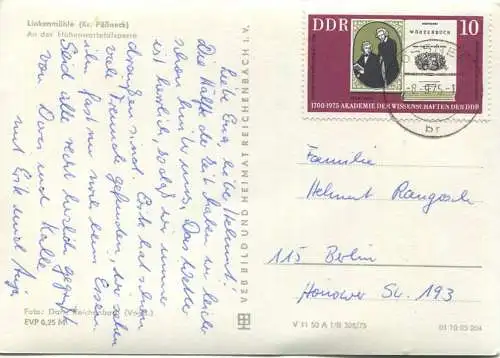 Linkenmühle (Kr. Pößneck)
An der Hohenwartetalsperre
Liebe Eva, lieber Helmut!
Die Hälfte der Zeit haben wir leider
schon hinter uns. Das Wetter
ist herrlich, so daß wir immer
draußen sind. Eike hat schon
viele Freunde gefunden, wir sehen
ihn fast nur noch beim Essen.
Seid alle recht herzlich gegrüßt
von Dora und Kalle
mit Eike und Anja
Foto: Darr, Reichenbach (Vogtl.)
EVP 0,25 M
VEB BILD UND HEIMAT REICHENBACH I. V.
DDR
WÖRTERBUCH
10
1700-1975 AKADEMIE DER WISSENSCHAFTEN DER DDR
-8.-9.75-1
br
Familie
Helmut Rangosch
115 Berlin
Hönower Str. 193
V 11 50 A 1/B 326/75
01 10 03 204